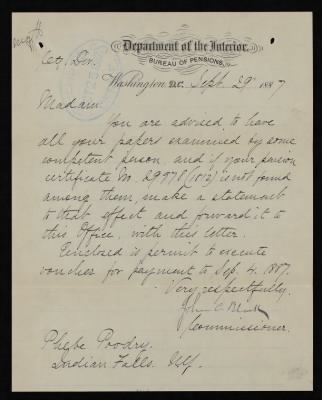 Ctf. Div.
Department of the Interior,
BUREAU OF PENSIONS,
Washington, D.C. Sept. 29" 1887
Madam:
You are advised to have
all your papers examined by some
competent person, and if your pension
certificate No. 29978 (1812) is not found
among them, make a statement
to that effect and forward it to
this Office, with this letter.
Enclosed is permit to execute
voucher for payment to Sep. 4. 1887.
Very respectfully,
John C Black
Commissioner.
Phebe Poodry.
Indian Falls.